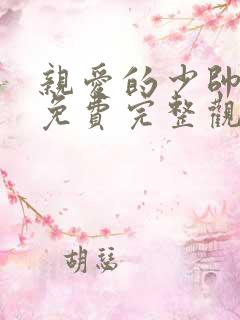 親愛的少帥
免費完整觀
胡瑟